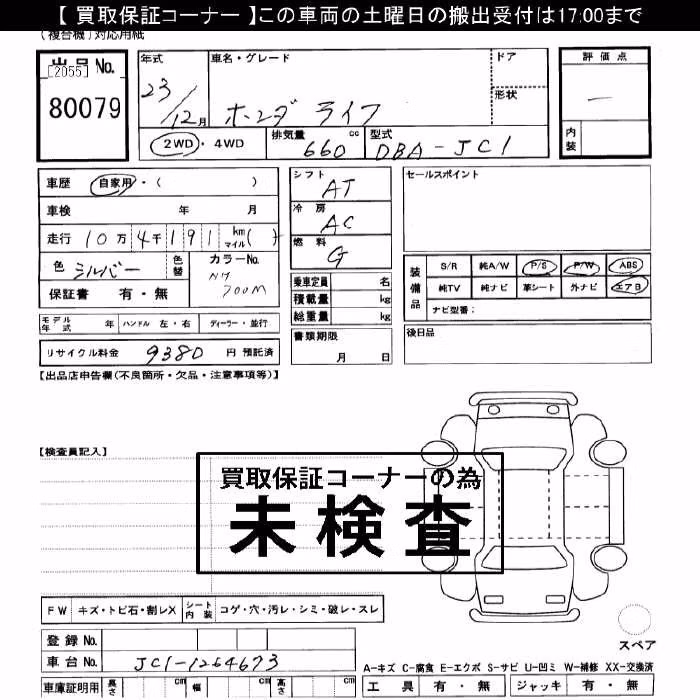 【 買取保証コーナー 】この車両の土曜日の搬出受付は17:00まで
(複合機)対応用紙
出品 No.
[2055]
80079
年式
23/12月
車名・グレード
ホンダ ライフ
ドア
形状
評価点
内装
2WD・4WD
排気量 660 cc
型式 DBA-JC1
車歴 自家用・( )
車検 年 月
走行 10万4千191 km マイル( )
色 シルバー 色替
カラーNo. NH700M
保証書 有・無
シフト AT
冷房 AC
燃料 G
乗車定員 名
積載量 kg
総重量 kg
セールスポイント
装備品
S/R 純A/W P/S P/W ABS
純TV 純ナビ 革シート 外ナビ エアB
ナビ型番：
モデル年式 年 ハンドル 左・右 ディーラー・並行
リサイクル料金 9380 円 預託済
書類期限 月 日
後日品
【出品店申告欄(不良箇所・欠品・注意事項等)】
【検査員記入】
買取保証コーナーの為
未検査
FW キズ・トビ石・割レX シート内装 コゲ・穴・汚レ・シミ・破レ・スレ
登録 No.
車台 No. JC1-1264673
車庫証明用 長さ cm 幅 cm 高さ cm
スペア
A-キズ C-腐食 E-エクボ S-サビ U-凹ミ W-補修 XX-交換済
工具 有・無 ジャッキ 有・無